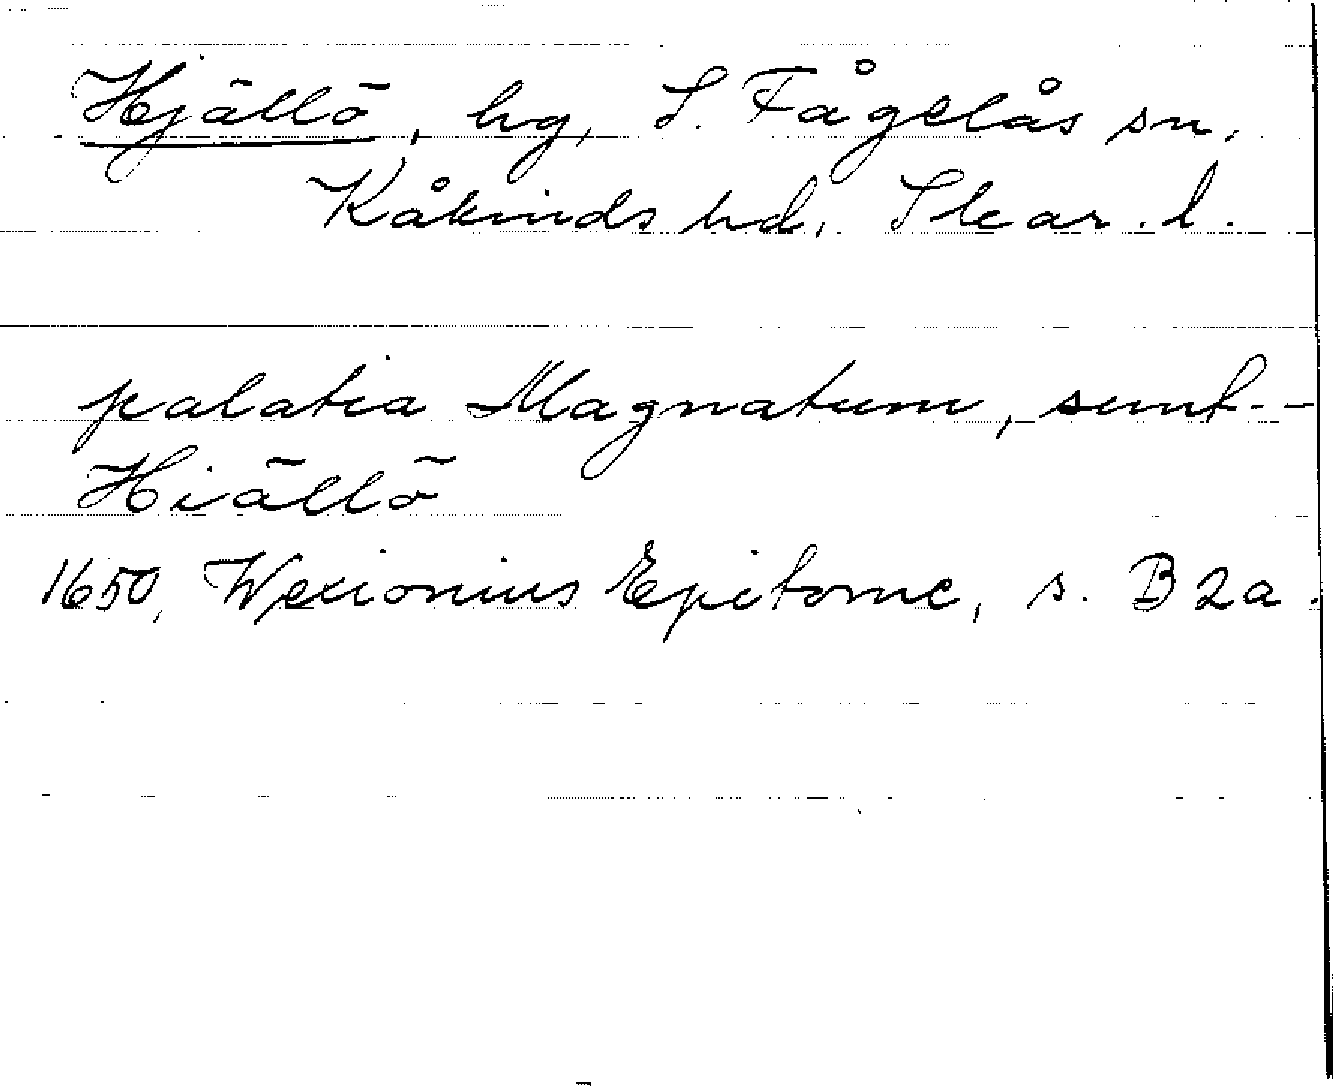 Hjällö, hg, S. Fågelås sn,
Kåkinds hd, Skar. l.
palatia Magnatum, sunt--
Hiällö
1650, Wexionius Epitome, s. B2a.